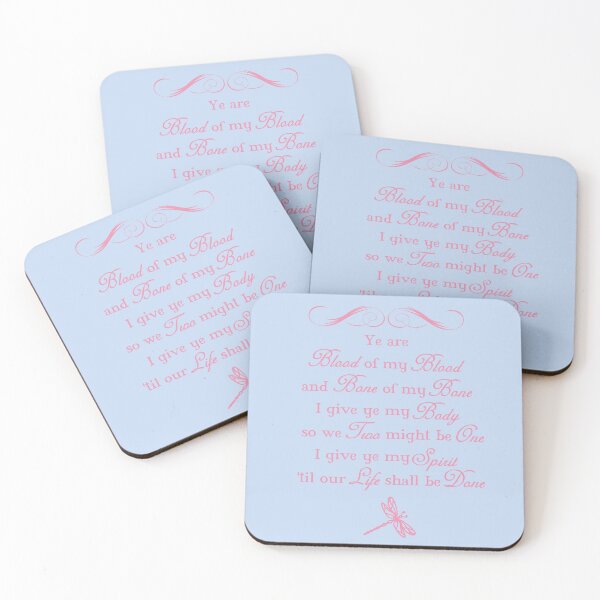 Ye are
Blood of my Blood
and Bone of my Bone
I give ye my Body
Ye are
Blood of my Blood
and Bone of my Bone
I give ye my Body
so we Two might be One
I give ye my Spirit
Ye are
Blood of my Blood
and Bone of my Bone
I give ye my Body
so we Two might be One
I give ye my Spirit
'til our Life shall
Ye are
Blood of my Blood
and Bone of my Bone
I give ye my Body
so we Two might be One
I give ye my Spirit
'til our Life shall be Done